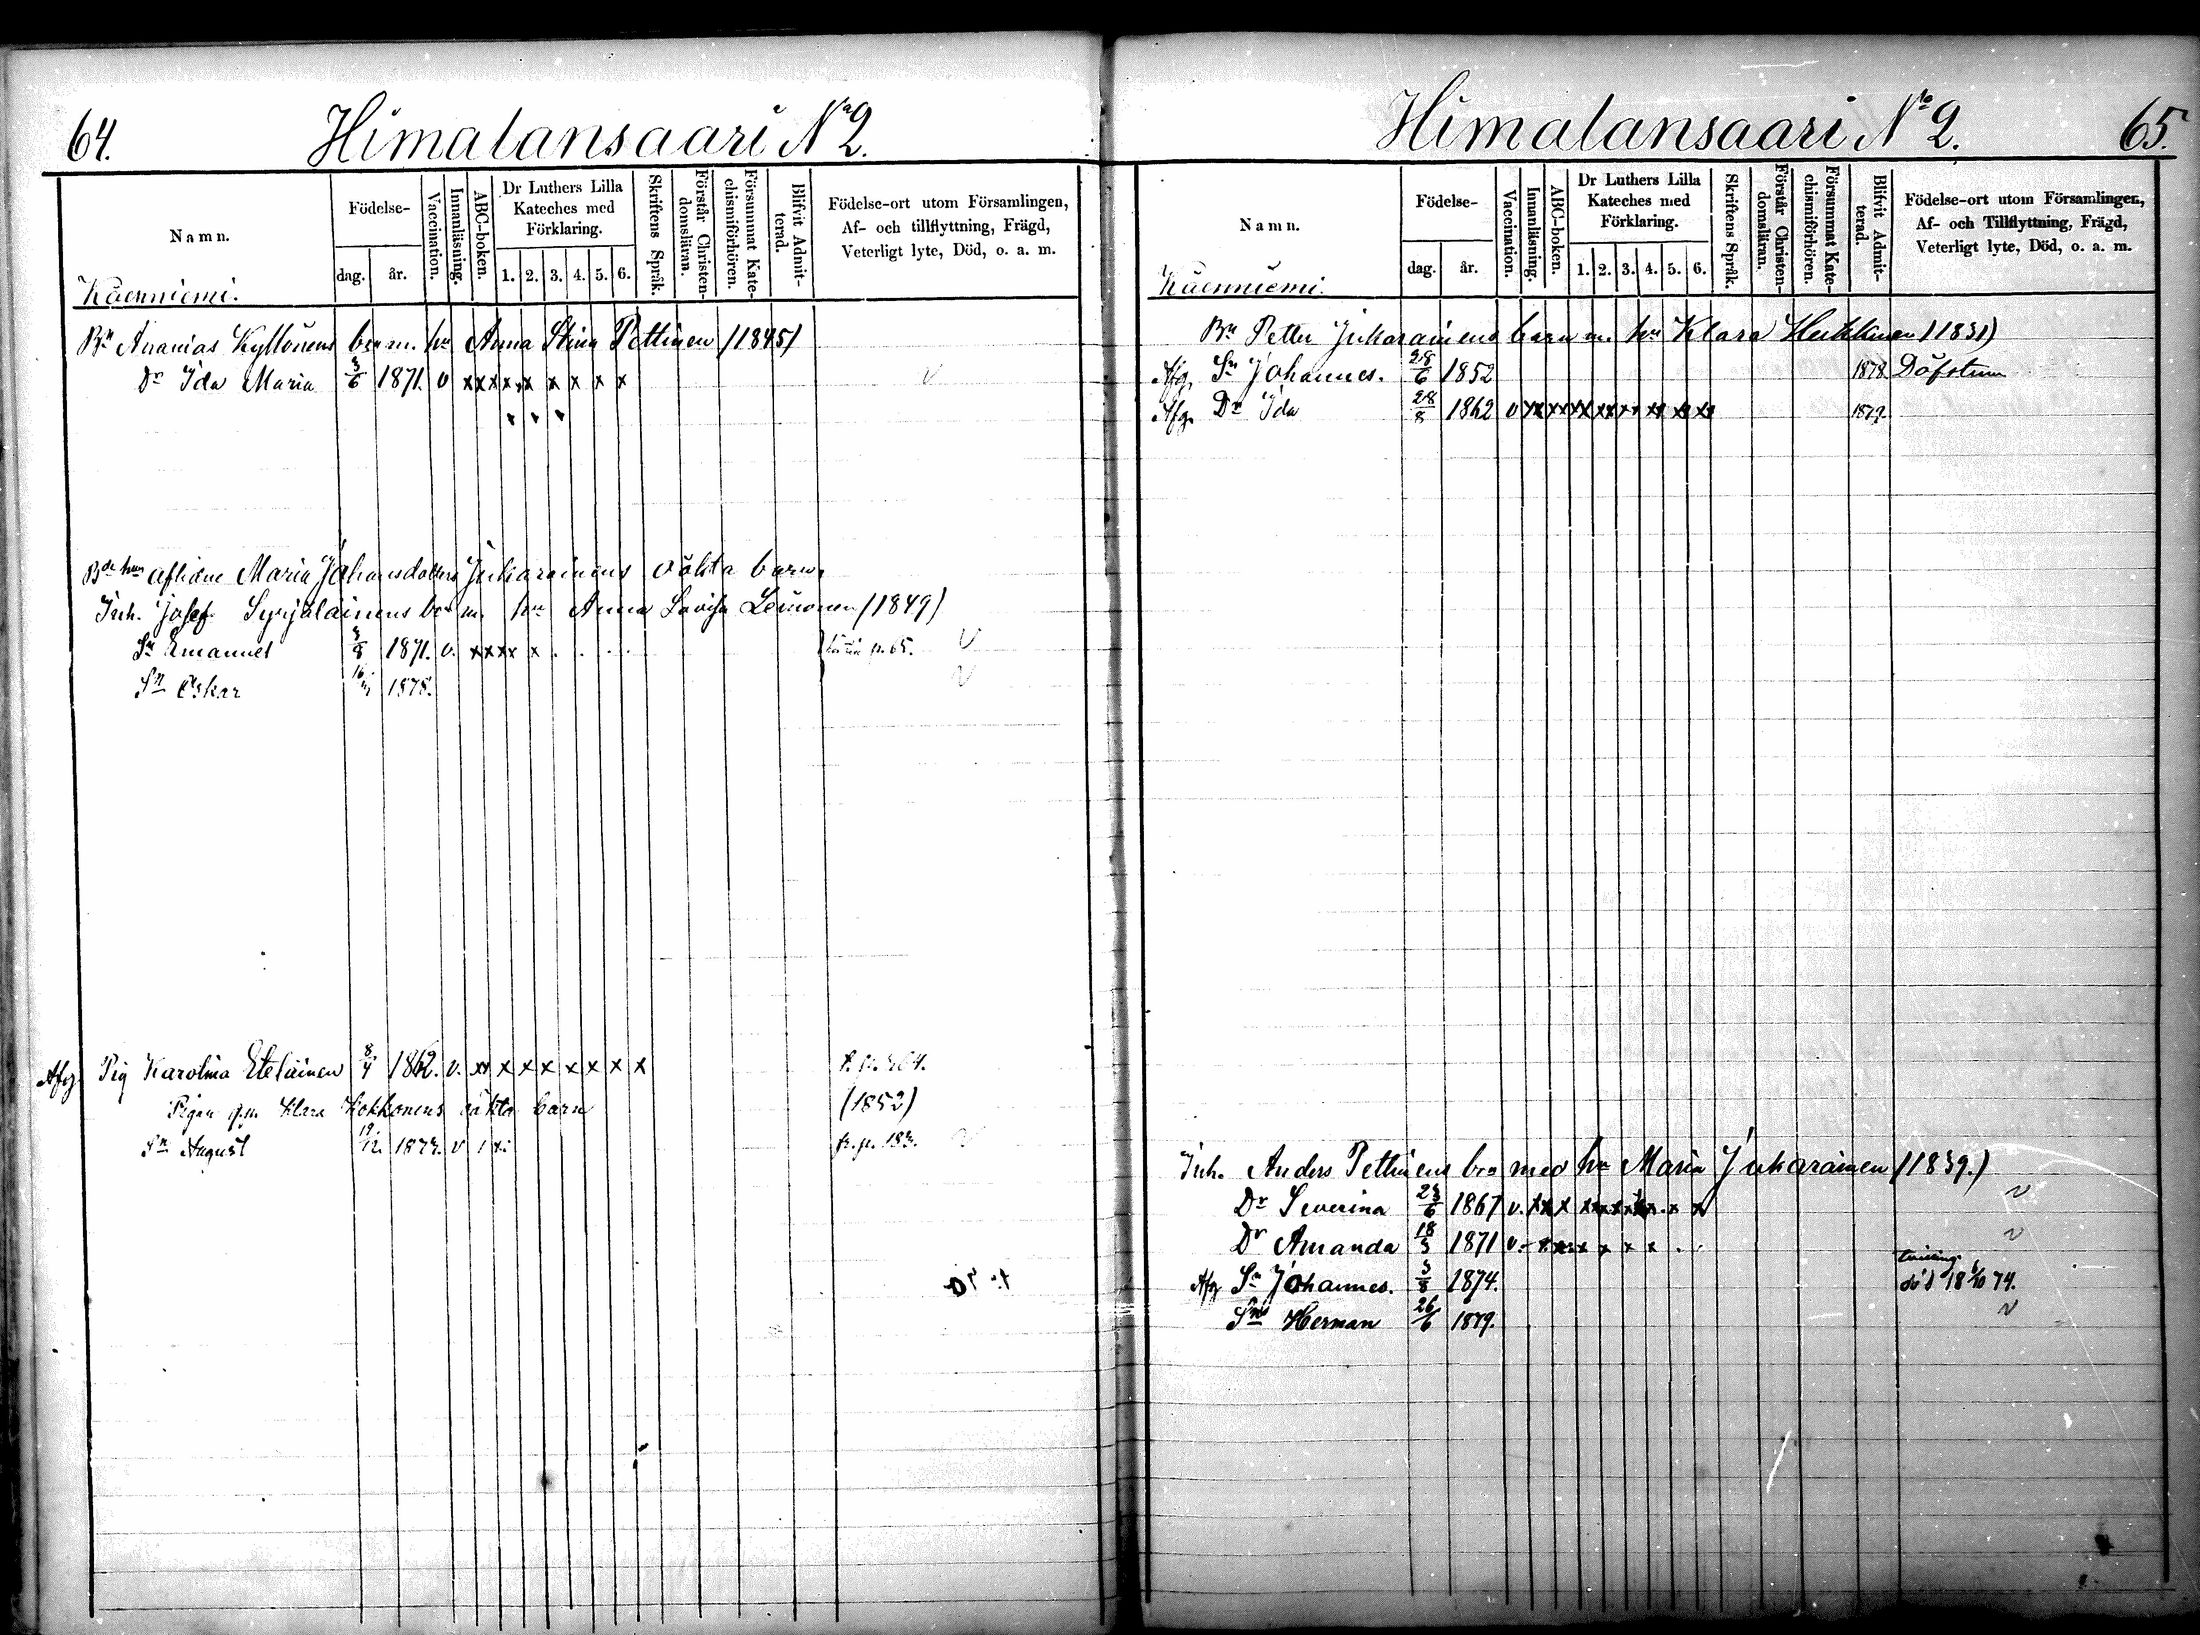 64.
Himalansaari No 2.
Namn.
Födelse-
dag.
år.
Vaccination.
Innanläsning.
ABC-boken.
Dr Luthers Lilla Kateches med Förklaring.
1. 2. 3. 4. 5. 6.
Skriftens Språk.
Förstår Christendomsläran.
Försummat Katechismiförhören.
Blifvit Admitterad.
Födelse-ort utom Församlingen,
Af- och tillflyttning, Frägd,
Veterligt lyte, Död, o. a. m.
Käenniemi.
Bn Ananias Kyllönens bn m. hu Anna Stina Pettinen (1845)
Dr Ida Maria 3/6 1871. v x x x x x x x x x v
aflidne Maria Johansdotters Jukarainens oäkta barn.
Inh. Josef Syrjäläinens bn m. hu Anna Lovisa (1849)
Sn Emanuel 1871. v. x x x x x p. 65. v
Sn Oskar 1878. v
Afg. Pig Karolina Eteläinen 8/4 1862. v. x x x x x x x x x
Klara Kokkonens oäkta barn (1852)
Sn August 19/12 1873. v fr. p. 183. v
Himalansaari No 2.
65.
Namn.
Födelse-
dag.
år.
Vaccination.
Innanläsning.
ABC-boken.
Dr Luthers Lilla Kateches med Förklaring.
1. 2. 3. 4. 5. 6.
Skriftens Språk.
Förstår Christendomsläran.
Försummat Katechismiförhören.
Blifvit Admitterad.
Födelse-ort utom Församlingen,
Af- och Tillflyttning, Frägd,
Veterligt lyte, Död, o. a. m.
Käenniemi.
Bn Petter Jukarainens barn m. hu Klara Heikkinen (1831)
Afg. Sn Johannes. 28/6 1852 1878 Döfstum
Afg. Dr Ida 28/8 1862 v x x x x x x x x x 1879
Inh. Anders Pettinens bn med hu Maria Jukarainen (1839.)
Dr Severina 23/6 1867 v. x x x x x x x x x v
Dr Amanda 18/3 1871 v. x x x x x x v
tvilling
Afg Sn Johannes. 3/8 1874. död 18 /10 74.
Sn Herman 26/6 1879. v